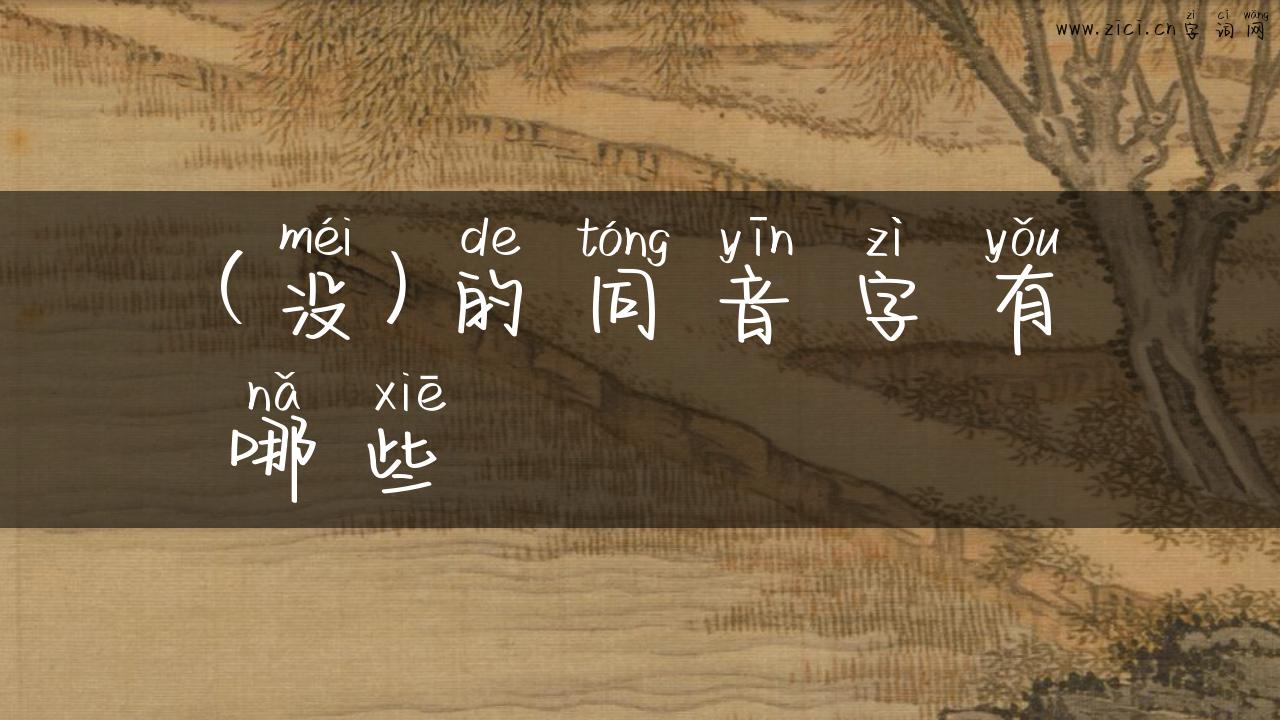 zì cí wǎng
www.zici.cn字词网
méi de tóng yīn zì yǒu
(没)的同音字有
nǎ xiē
哪些